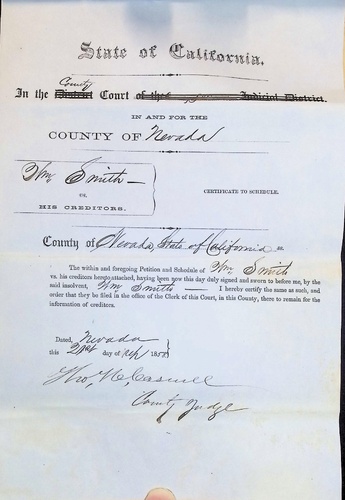 State of California.
County
In the District Court of the Judicial District.
IN AND FOR THE
COUNTY OF Nevada
Wm Smith
vs.
HIS CREDITORS.
CERTIFICATE TO SCHEDULE.
County of Nevada, State of California ss.
The within and foregoing Petition and Schedule of Wm Smith
vs. his creditors hereto attached, having been now this day duly signed and sworn to before me, by the
said insolvent, Wm Smith — I hereby certify the same as such, and
order that they be filed in the office of the Clerk of this Court, in this County, there to remain for the
information of creditors.
Dated, Nevada
this 21st day of 185
Caswell
County Judge